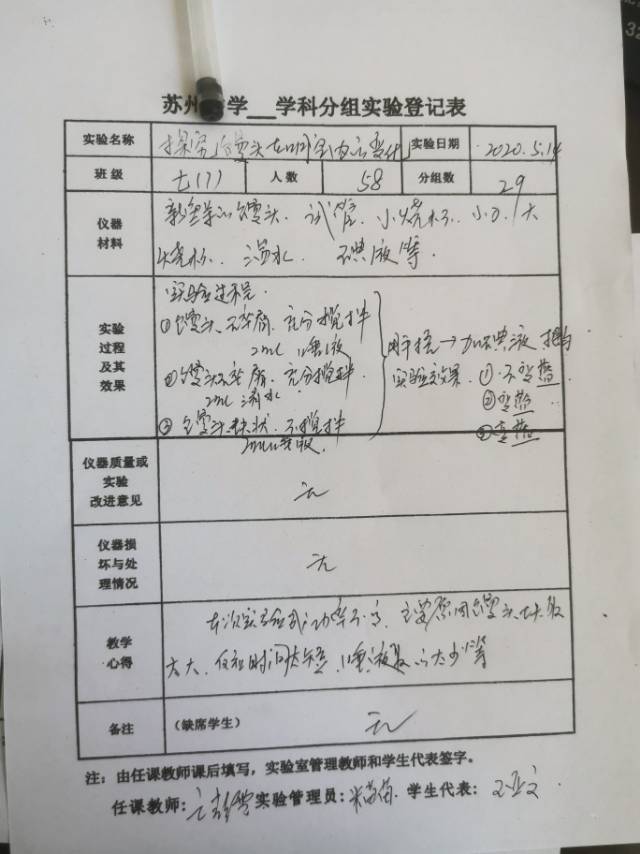 苏州 学___学科分组实验登记表
实验名称 探究馒头在口腔内的变化 实验日期 2020.5.14
班级 七(1) 人数 58 分组数 29
仪器材料 新鲜的馒头、试管、小烧杯、小刀、大
烧杯、温水、碘液等.
实验过程及其效果 实验过程:
①馒头碎屑、充分搅拌
2ml唾液
②馒头碎屑、充分搅拌
2ml清水
③馒头块状、不搅拌
2ml唾液
→加碘液
实验效果. ①不变蓝
②变蓝
③变蓝
仪器质量或实验改进意见 无
仪器损坏与处理情况 无
教学心得 本次实验成功率不高,主要原因馒头块取
太大、保温时间太短,唾液取的太少等
备注 (缺席学生) 无
注:由任课教师课后填写,实验室管理教师和学生代表签字。
任课教师: 实验管理员: 学生代表: